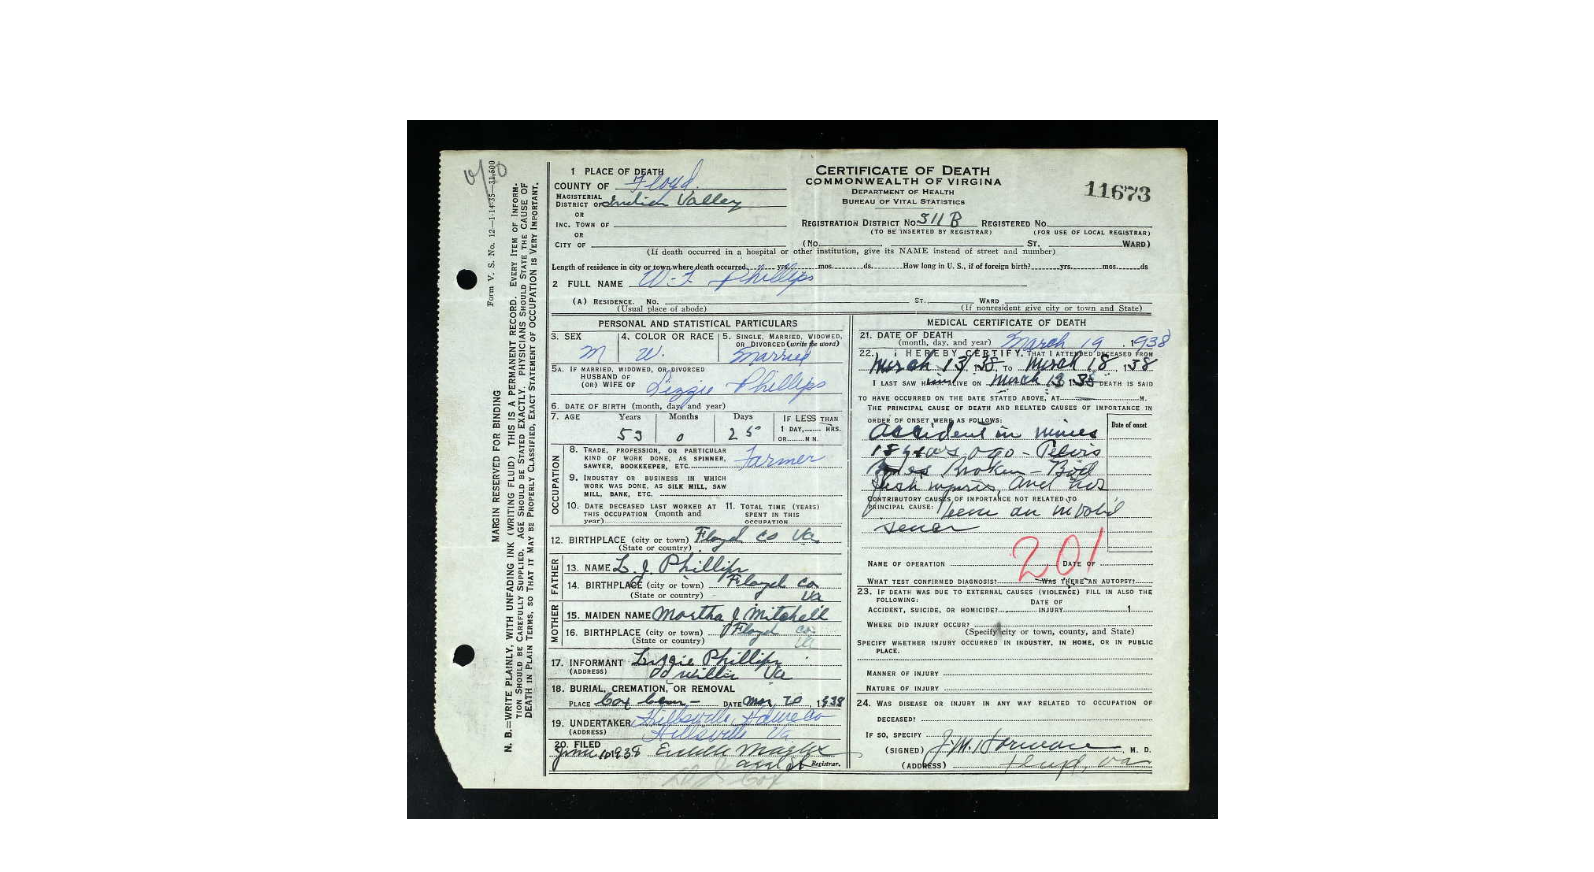 1 PLACE OF DEATH
COUNTY OF Floyd
MAGISTERIAL
DISTRICT OF Indian Valley
OR
INC. TOWN OF
OR
CITY OF
CERTIFICATE OF DEATH
COMMONWEALTH OF VIRGINIA
DEPARTMENT OF HEALTH
BUREAU OF VITAL STATISTICS
11673
REGISTRATION DISTRICT No 311B REGISTERED No
(TO BE INSERTED BY REGISTRAR) (FOR USE OF LOCAL REGISTRAR)
(No. ST. WARD)
(If death occurred in a hospital or other institution, give its NAME instead of street and number)
Length of residence in city or town where death occurred yrs. mos. ds. How long in U. S., if of foreign birth? yrs. mos. ds
2 FULL NAME W. T. Phillips
(A) RESIDENCE. No. ST. WARD
(Usual place of abode) (If nonresident give city or town and State)
PERSONAL AND STATISTICAL PARTICULARS
3. SEX 4. COLOR OR RACE 5. SINGLE, MARRIED, WIDOWED,
OR DIVORCED (write the word)
M W. Married
5A. IF MARRIED, WIDOWED, OR DIVORCED
HUSBAND OF
(OR) WIFE OF Lizzie Phillips
6. DATE OF BIRTH (month, day, and year)
7. AGE Years Months Days IF LESS THAN
1 DAY, HRS.
OR MIN.
53 0 25
OCCUPATION
8. TRADE, PROFESSION, OR PARTICULAR
KIND OF WORK DONE, AS SPINNER,
SAWYER, BOOKKEEPER, ETC. Farmer
9. INDUSTRY OR BUSINESS IN WHICH
WORK WAS DONE, AS SILK MILL, SAW
MILL, BANK, ETC.
10. DATE DECEASED LAST WORKED AT
THIS OCCUPATION (month and
year)
11. TOTAL TIME (YEARS)
SPENT IN THIS
OCCUPATION
12. BIRTHPLACE (city or town) Floyd Co Va
(State or country)
FATHER
13. NAME L. J. Phillips
14. BIRTHPLACE (city or town) Floyd Co.
(State or country) Va
MOTHER
15. MAIDEN NAME Martha J Mitchell
16. BIRTHPLACE (city or town) Floyd Co.
(State or country) Va
17. INFORMANT Lizzie Phillips
(ADDRESS) Willis Va
18. BURIAL, CREMATION, OR REMOVAL
PLACE Cox Cem DATE Mar 20, 1938
19. UNDERTAKER Hillsville Hdwe Co
(ADDRESS) Hillsville Va
20. FILED
June 10 1938
Registrar.
MEDICAL CERTIFICATE OF DEATH
21. DATE OF DEATH
(month, day, and year) March 19, 1938
22. I HEREBY CERTIFY, THAT I ATTENDED DECEASED FROM
March 13, 38, TO March 18, 38
I LAST SAW him ALIVE ON March 18 1938 DEATH IS SAID
TO HAVE OCCURRED ON THE DATE STATED ABOVE, AT M.
THE PRINCIPAL CAUSE OF DEATH AND RELATED CAUSES OF IMPORTANCE IN
ORDER OF ONSET WERE AS FOLLOWS:
Date of onset
Accident in mines
18 years ago - Pelvis
broken - Bad
flesh injuries, and has
CONTRIBUTORY CAUSES OF IMPORTANCE NOT RELATED TO
PRINCIPAL CAUSE:
been an invalid
since
201
NAME OF OPERATION DATE OF
WHAT TEST CONFIRMED DIAGNOSIS? WAS THERE AN AUTOPSY?
23. IF DEATH WAS DUE TO EXTERNAL CAUSES (VIOLENCE) FILL IN ALSO THE
FOLLOWING:
DATE OF
ACCIDENT, SUICIDE, OR HOMICIDE? INJURY 1
WHERE DID INJURY OCCUR?
(Specify city or town, county, and State)
SPECIFY WHETHER INJURY OCCURRED IN INDUSTRY, IN HOME, OR IN PUBLIC
PLACE.
MANNER OF INJURY
NATURE OF INJURY
24. WAS DISEASE OR INJURY IN ANY WAY RELATED TO OCCUPATION OF
DECEASED?
IF SO, SPECIFY
(SIGNED) J. M. Harman, M. D.
(ADDRESS) Floyd, Va
Form V. S. No. 12—1-14-35—
MARGIN RESERVED FOR BINDING
N. B.—WRITE PLAINLY, WITH UNFADING INK (WRITING FLUID) THIS IS A PERMANENT RECORD. EVERY ITEM OF INFORM-
TION SHOULD BE CAREFULLY SUPPLIED. AGE SHOULD BE STATED EXACTLY. PHYSICIANS SHOULD STATE THE CAUSE OF
DEATH IN PLAIN TERMS, SO THAT IT MAY BE PROPERLY CLASSIFIED. EXACT STATEMENT OF OCCUPATION IS VERY IMPORTANT.